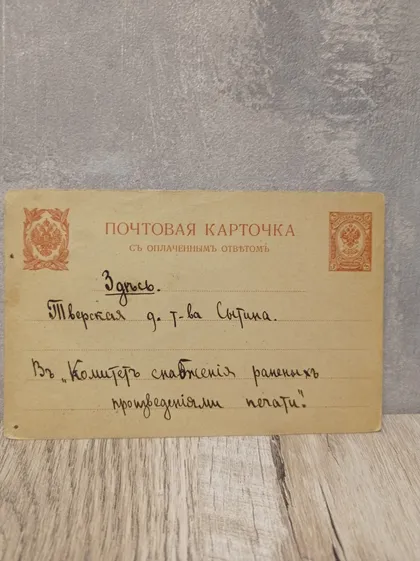 ПОЧТОВАЯ КАРТОЧКА
СЪ ОПЛАЧЕННЫМЪ ОТВѢТОМЪ.
Здѣсь.
Тверская д. т-ва Сытина.
Въ „Комитетъ снабженія раненыхъ
произведеніями печати".